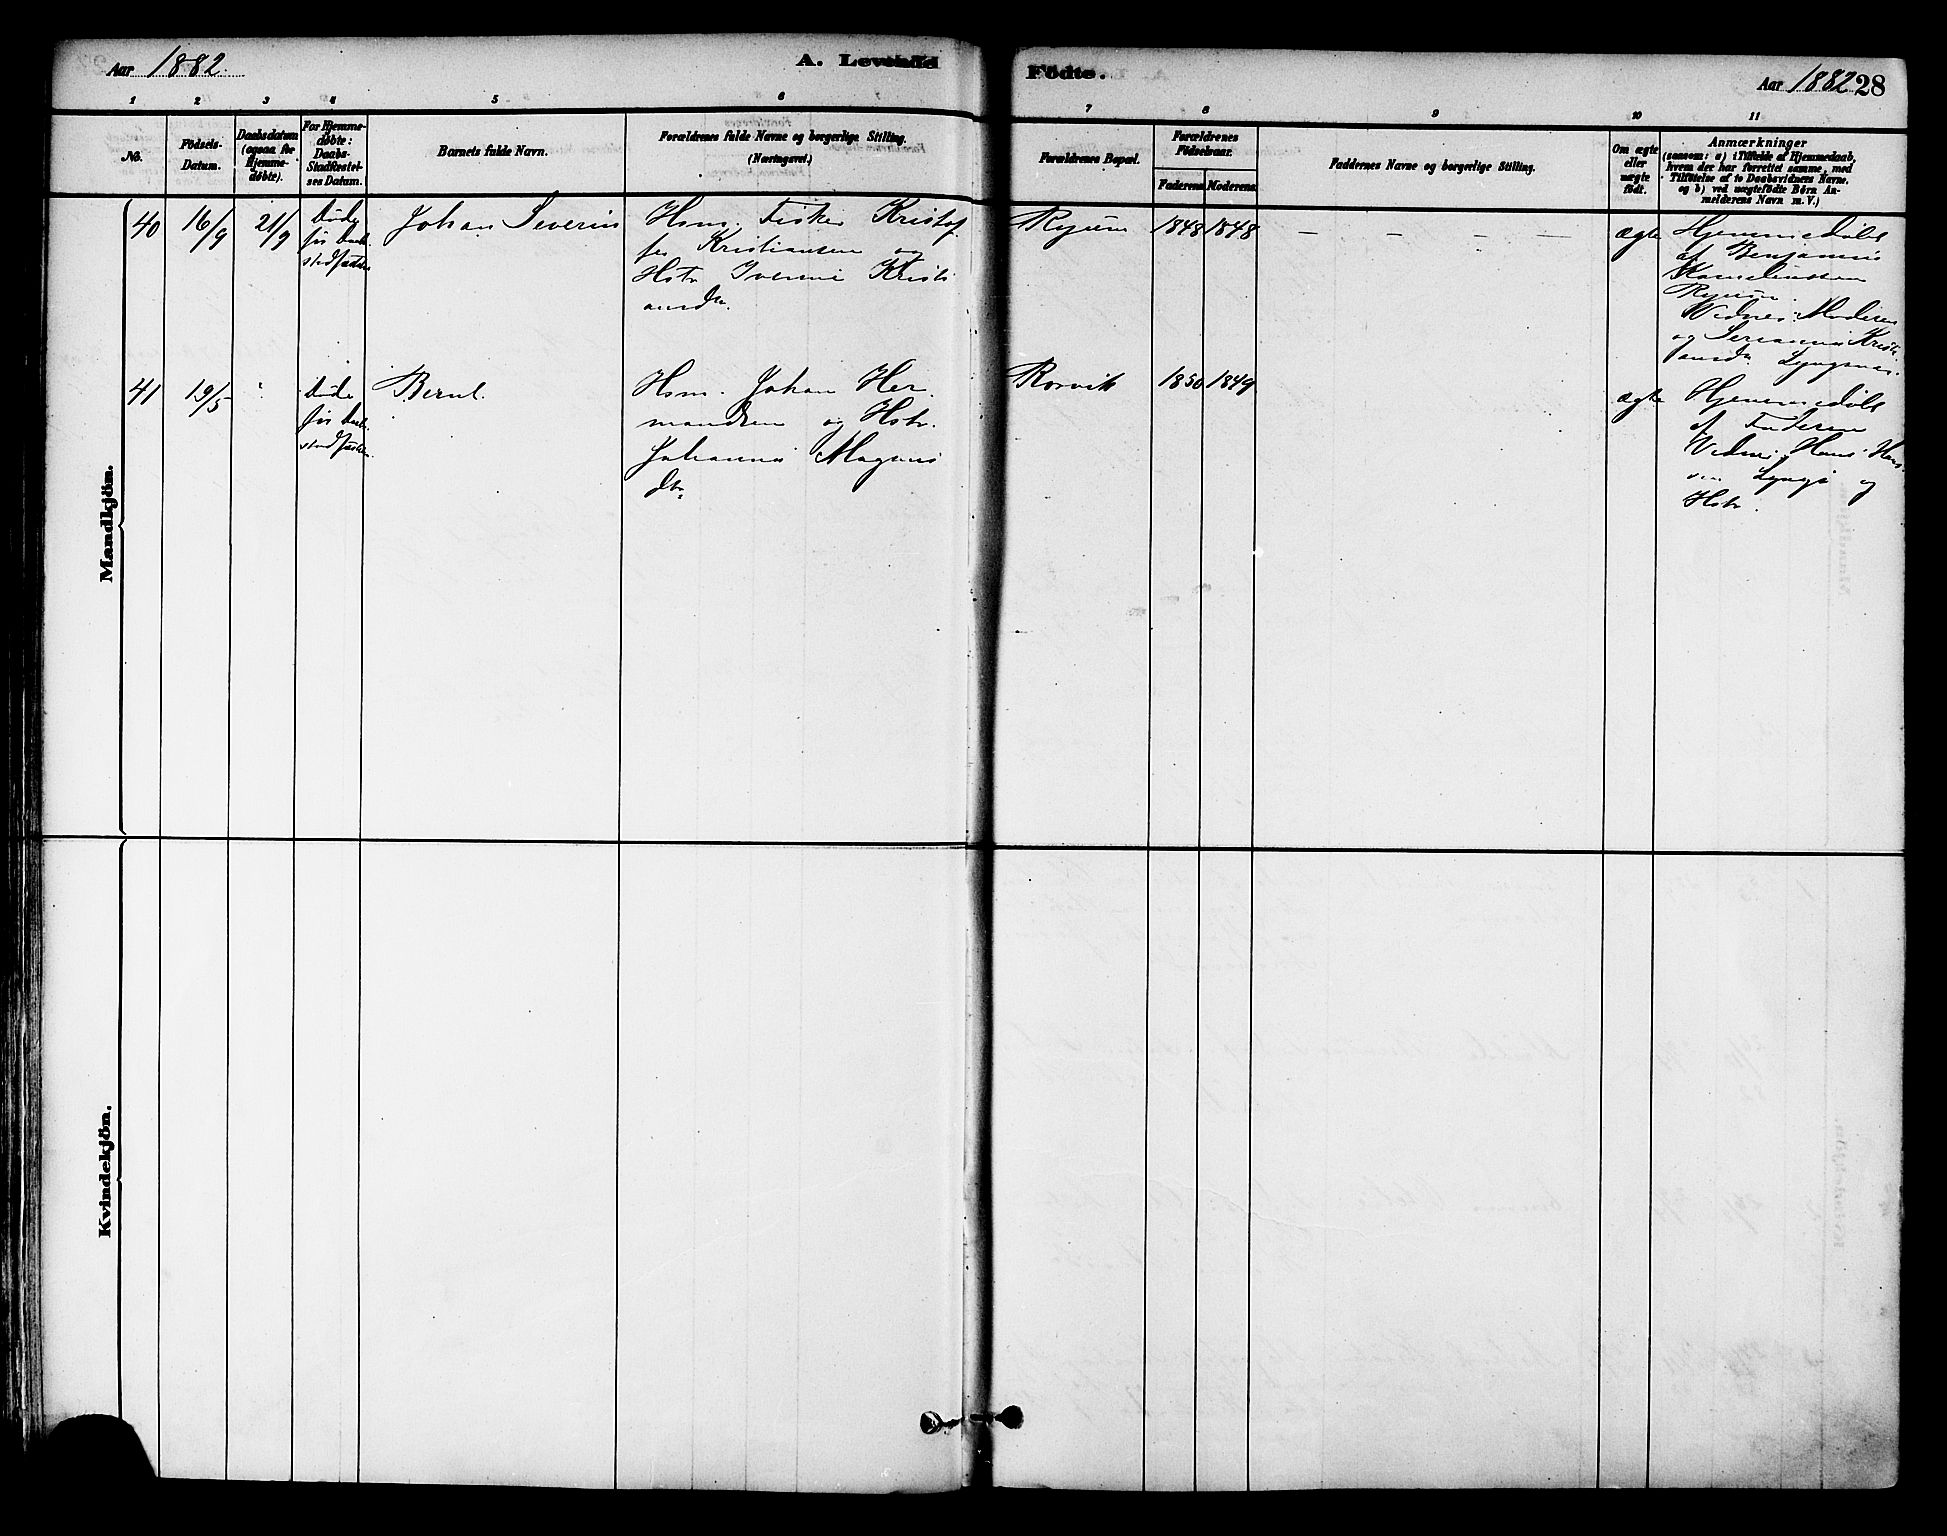 Aar 1882.
A. Levende
Födte.
Aar 1882 28
1 2 3 4 5 6 7 8 9 10 11
No.
Födsels-
Datum.
Daabsdatum
(ogsaa for
Hjemme-
døbte).
For Hjemme-
døbte:
Daabs-
Stadfæstel-
ses Datum.
Barnets fulde Navn.
Forældrenes fulde Navne og borgerlige Stilling.
(Næringsvei.)
Forældrenes Bopæl.
Forældrenes
Födselsaar.
Faderens. Moderens.
Faddernes Navne og borgerlige Stilling.
Om ægte
eller
uægte
födt.
Anmærkninger
(saasom: a) i Tilfælde af Hjemmedaab,
hvem der har forrettet samme, med
Tilföielse af to Daabsvidners Navne,
og b) ved uægtefödte Börn An-
melderens Navn m. V.)
Mandkjön.
40 16/9 21/9
døde
før daab.
stadfæstes
Johan Severin
Hsm. Fisker Kristof
fer Kristiansen og
Hstr Kristi
ansdr.
1848 1848 — — — —
ægte
Hjemmedøbt
af Benjamin
Vidner: Moderen
og Kristi
ansdr
41 19/5
døde
før daab.
stadfæstes
Bernt.
Hsm. Johan Her
mandsen og Hstr.
Johanna Magnus
dtr.
Rørvik 1850 1849
ægte
Hjemmedøbt
af Faderen
Vidner: Hans Han
sen og
Hstr.
Kvindekjön.